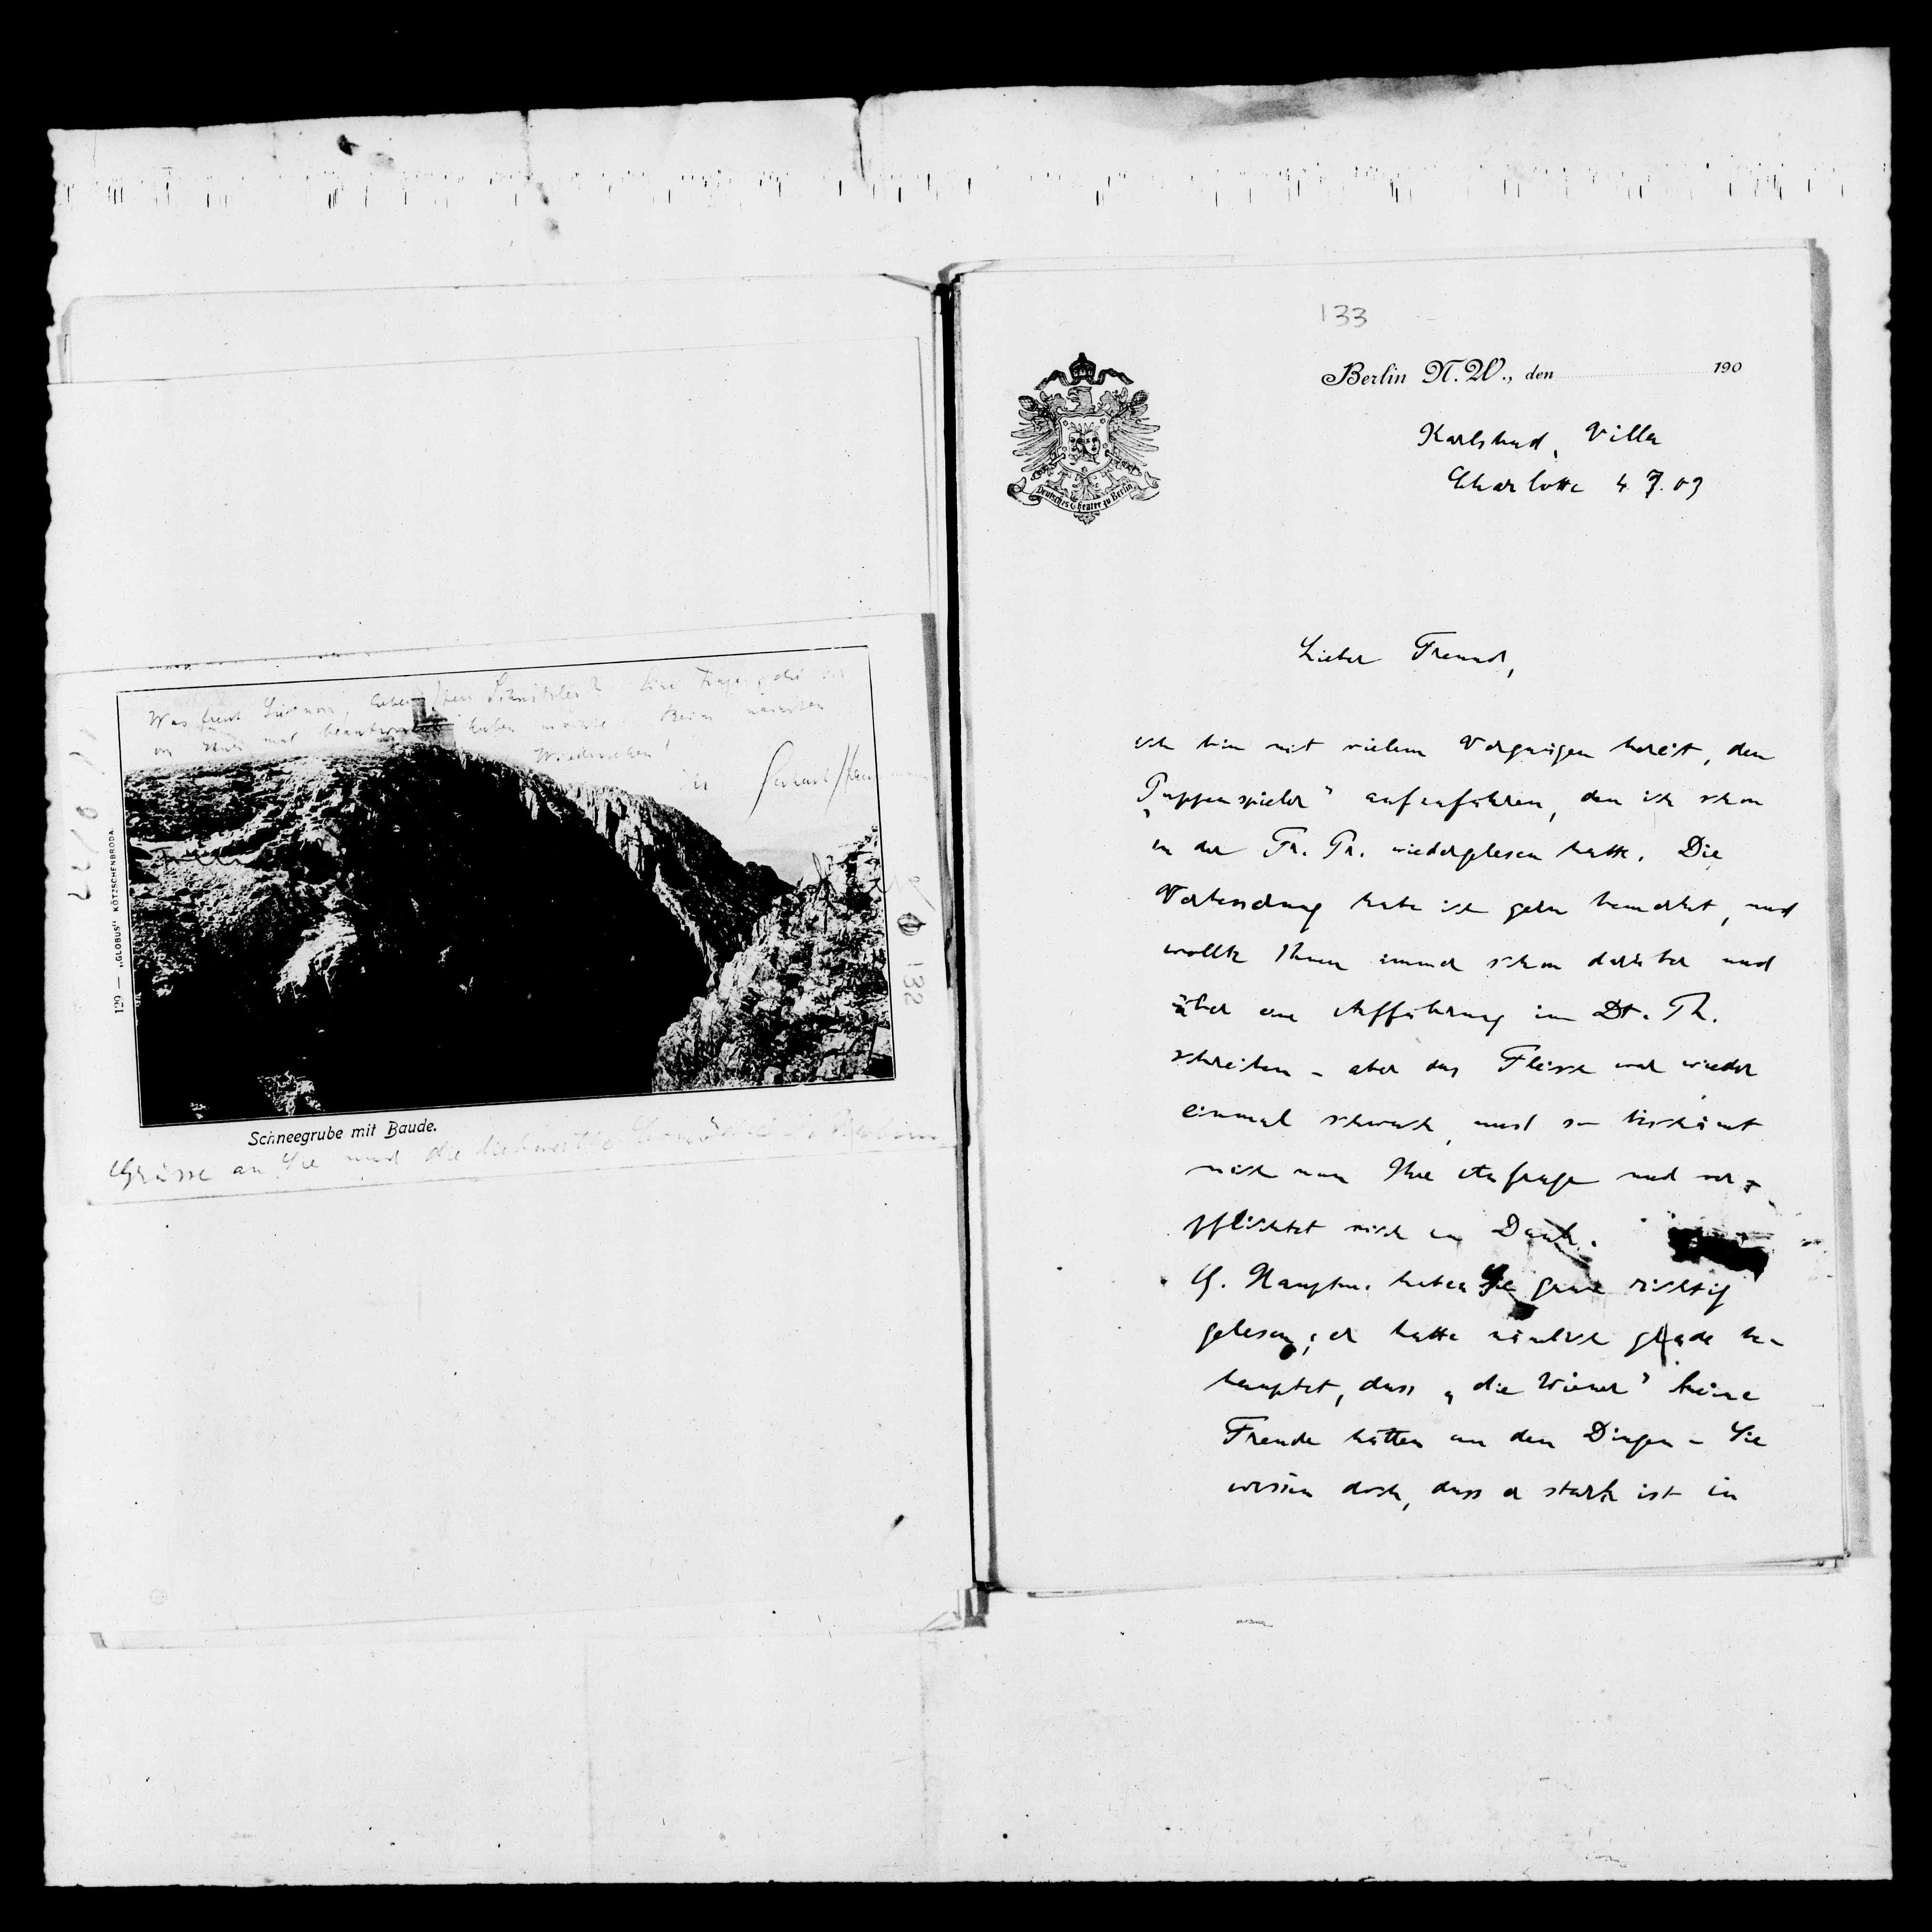 Was freut Sie nun, lieber Herr Schnitzler? Eine Frage, die
beantwortet haben möchte. Beim nächsten
Wiedersehen!
Ihr Gerhart Hauptmann
129 — „GLOBUS" KÖTZSCHENBRODA.
132
Schneegrube mit Baude.
Grüsse an Sie und die
133
Berlin N.W., den 190
Deutsches Theater zu Berlin
Karlsbad, Villa
Charlotte 4 7. 03
Lieber Freund,
ich bin mit vielem Vergnügen bereit, den
„Puppenspieler" aufzuführen, den ich schon
in der Fr. Pr. wiedergelesen hatte. Die
Verbesserung habe ich gern bemerkt, und
wollte Ihnen immer schon darüber und
über eine Aufführung im Dt. Th.
schreiben – aber das Fleisch war wieder
einmal schwach, und so beschämt
mich nun Ihre Anfrage und ver-
pflichtet mich zu Dank.
G. Hauptm. haben Sie ganz richtig
gelesen; er hatte nämlich grade be-
hauptet, dass „die Wiener" keine
Freude hätten an den Dingen – Sie
wissen doch, dass er stark ist in